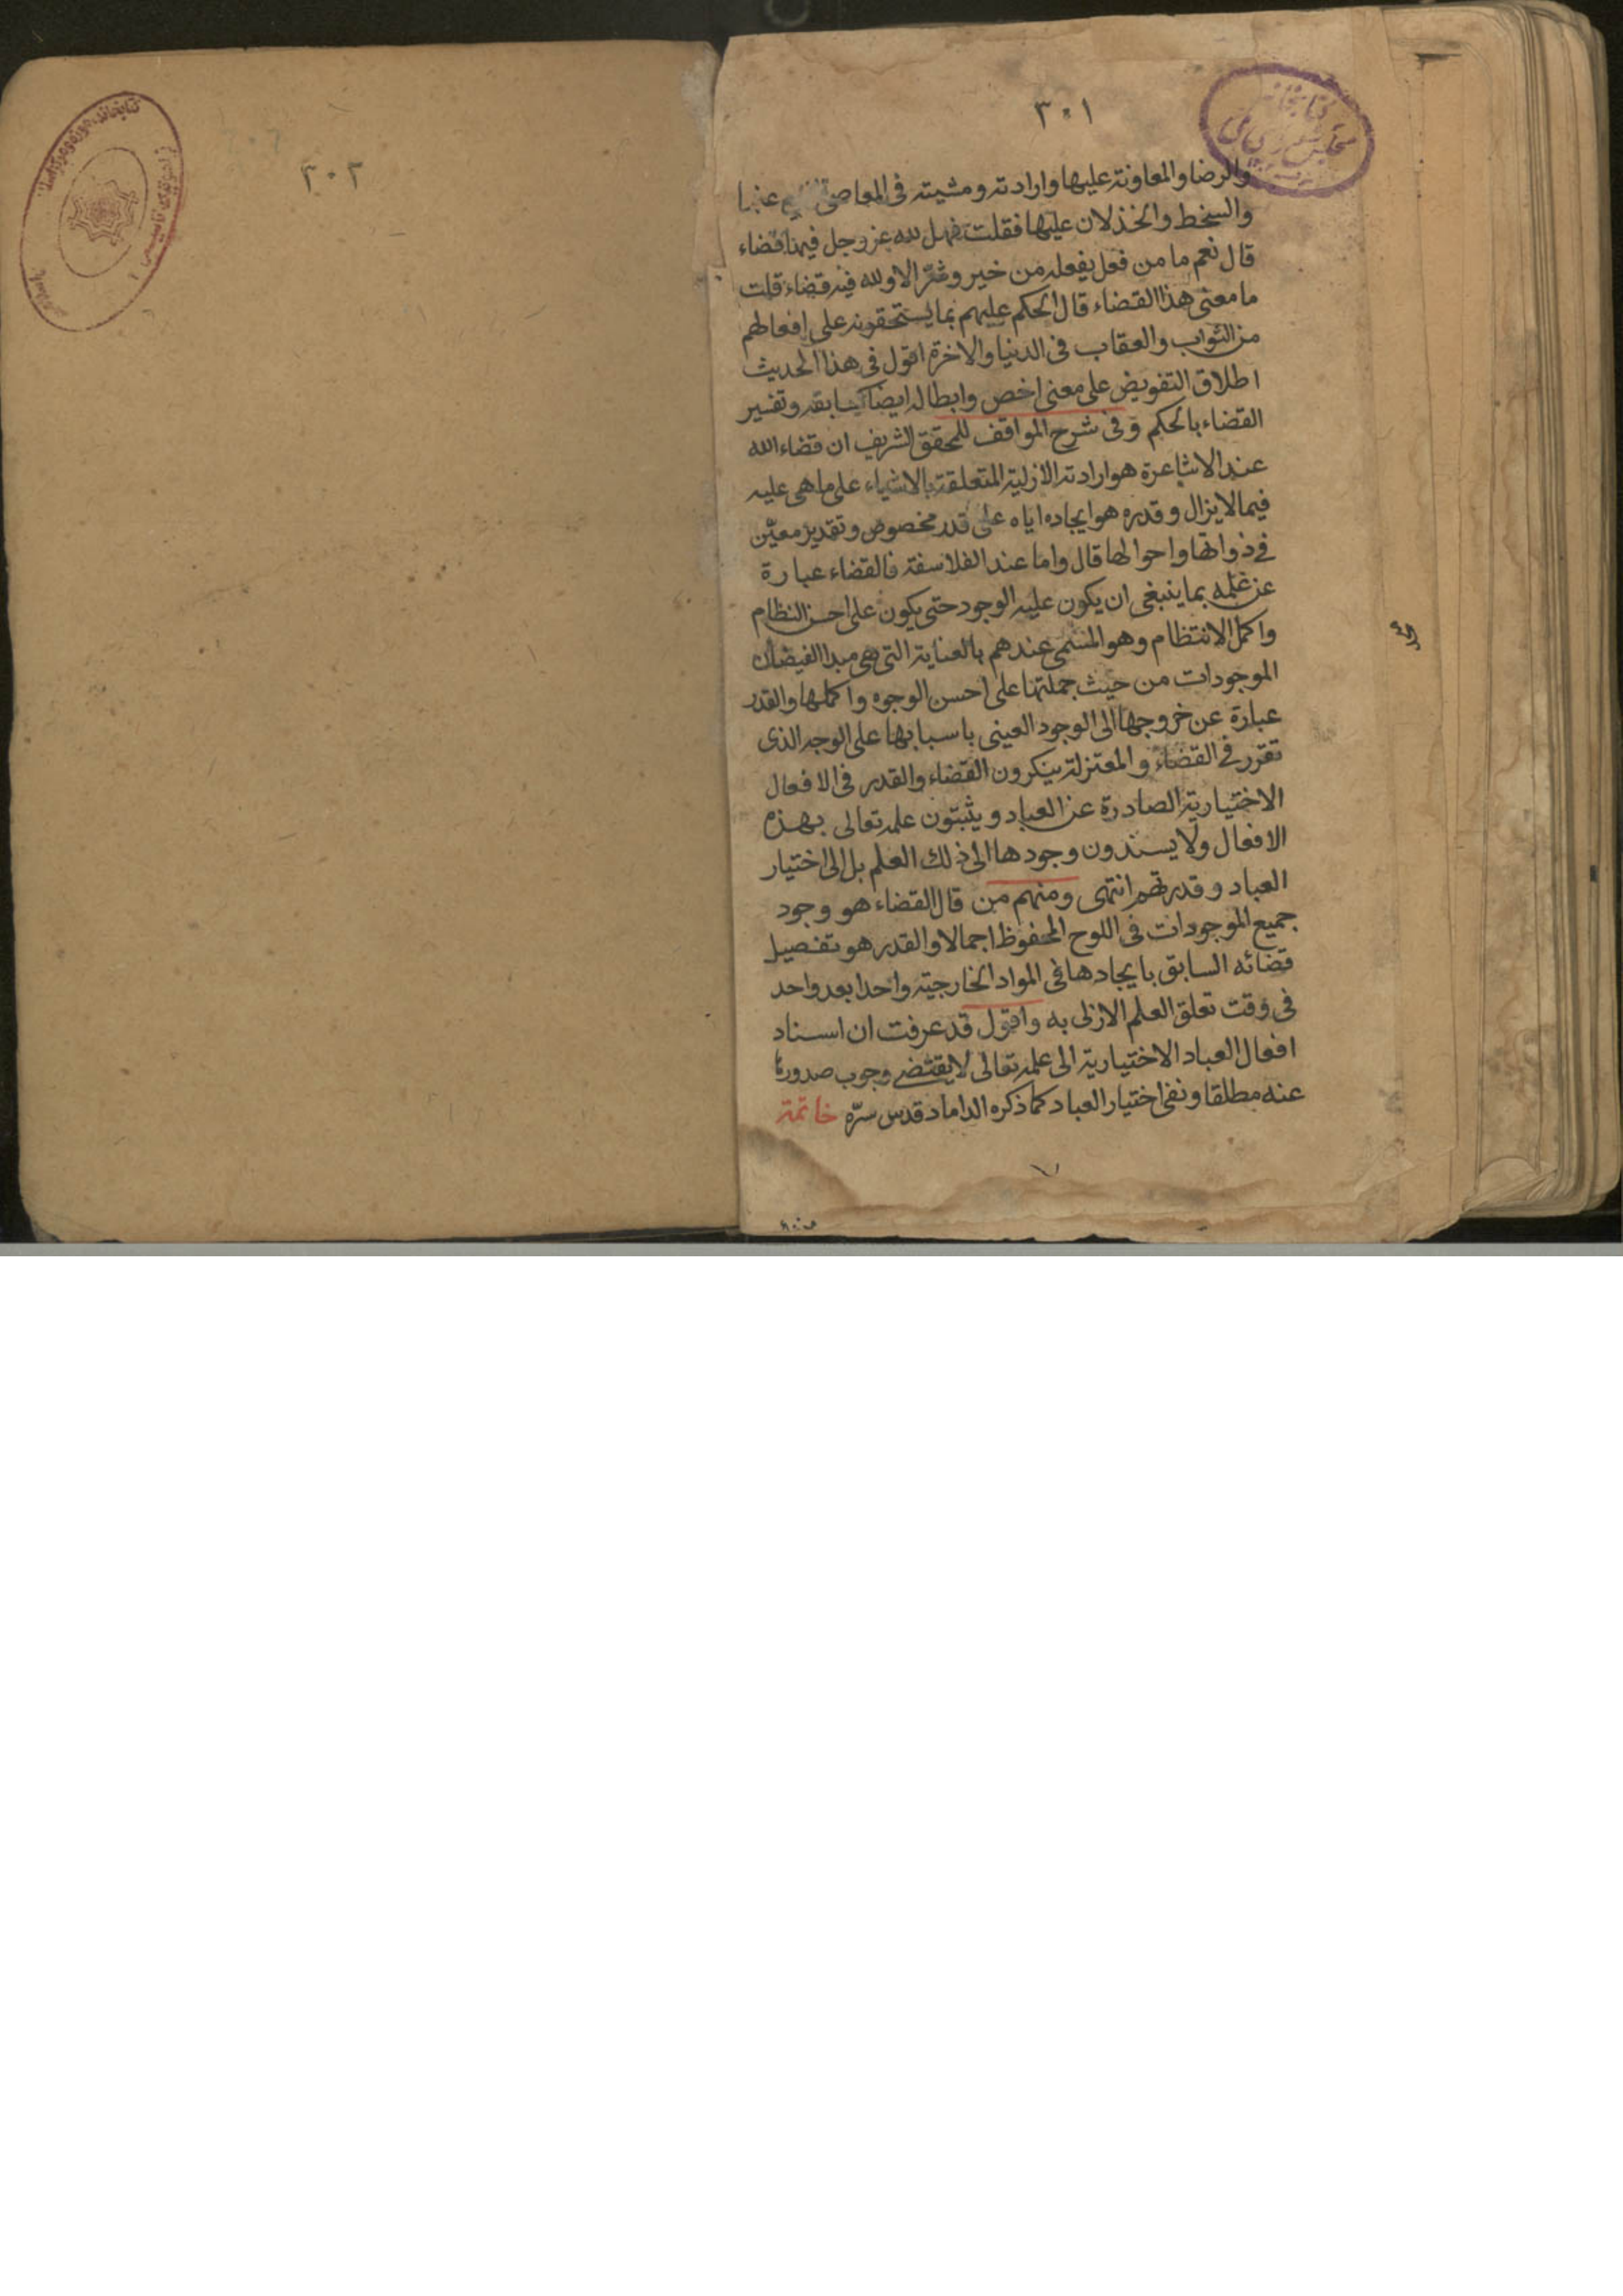 ٣٠١
والرضا والمعاونة عليها وارادته ومشيته فى المعاصى عنها
والسخط والخذلان عليها فقلت فهل لله عز وجل فيها قضاء
قال نعم ما من فعل يفعله من خير وشرّ الا ولله فيه قضاء قلت
ما معنى هذا القضاء قال الحكم عليهم بما يستحقونه على افعالهم
من الثواب والعقاب فى الدنيا والاخرة اقول فى هذا الحديث
اطلاق التفويض على معنى اخص وابطاله ايضا كسابقه وتفسير
القضاء بالحكم وفى شرح المواقف للمحقق الشريف ان قضاء الله
عند الاشاعرة هو ارادته الازلية المتعلقة بالاشياء على ما هى عليه
فيما لا يزال وقدره هو ايجاده اياه على قدر مخصوص وتقدير معيّن
فى ذواتها واحوالها قال واما عند الفلاسفة فالقضاء عبارة
عن علمه بما ينبغى ان يكون عليه الوجود حتى يكون على احسن النظام
واكمل الانتظام وهو المسمى عندهم بالعناية التى هى مبدا الفيضان
الموجودات من حيث جملتها على احسن الوجوه واكملها والقدر
عبارة عن خروجها الى الوجود العينى باسبابها على الوجه الذى
تقرر فى القضاء والمعتزلة ينكرون القضاء والقدر فى الافعال
الاختيارية الصادرة عن العباد ويثبتون علمه تعالى بهذه
الافعال ولا يسندون وجودها الى ذلك العلم بل الى اختيار
العباد وقدرتهم انتهى ومنهم من قال القضاء هو وجود
جميع الموجودات فى اللوح المحفوظ اجمالا والقدر هو تفصيل
قضائه السابق بايجادها فى المواد الخارجية واحدا بعد واحد
فى وقت تعلق العلم الازلى به واقول قد عرفت ان اسناد
افعال العباد الاختيارية الى علمه تعالى لا يقتضى وجوب صدورها
عنه مطلقا ونفى اختيار العباد كما ذكره الداماد قدس سرّه خاتمة
٣٠٢